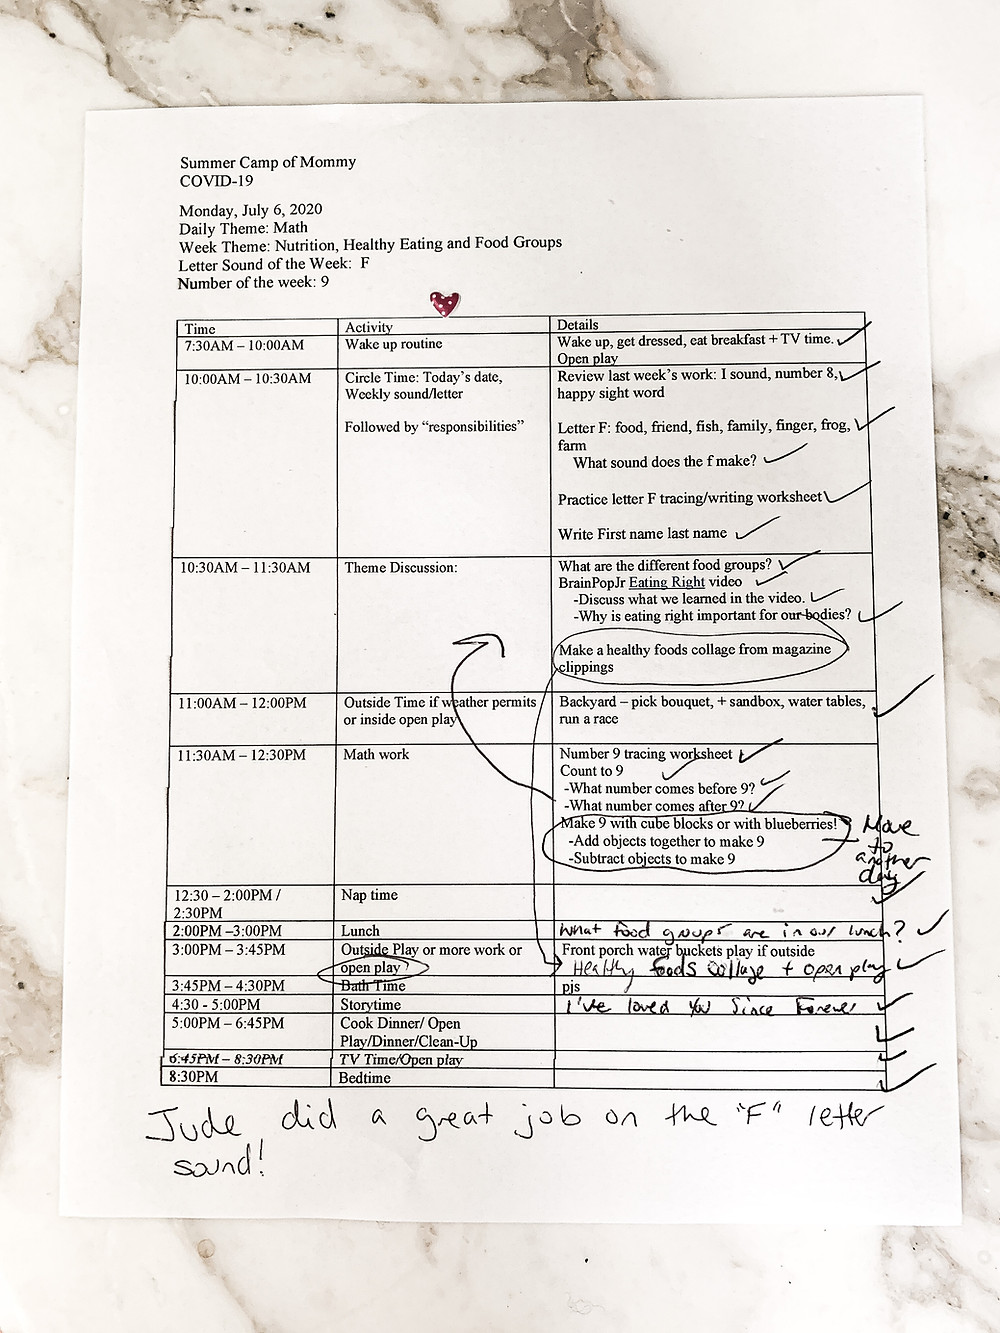 Summer Camp of Mommy
COVID-19
Monday, July 6, 2020
Daily Theme: Math
Week Theme: Nutrition, Healthy Eating and Food Groups
Letter Sound of the Week:  F
Number of the week: 9
Time Activity Details
7:30AM – 10:00AM Wake up routine Wake up, get dressed, eat breakfast + TV time.
Open play
10:00AM – 10:30AM Circle Time: Today's date, Review last week's work: I sound, number 8,
Weekly sound/letter happy sight word
Followed by "responsibilities" Letter F: food, friend, fish, family, finger, frog,
farm
What sound does the f make?
Practice letter F tracing/writing worksheet
Write First name last name
10:30AM – 11:30AM Theme Discussion: What are the different food groups?
BrainPopJr Eating Right video
-Discuss what we learned in the video.
-Why is eating right important for our bodies?
Make a healthy foods collage from magazine
clippings
11:00AM – 12:00PM Outside Time if weather permits Backyard – pick bouquet, + sandbox, water tables,
or inside open play run a race
11:30AM – 12:30PM Math work Number 9 tracing worksheet
Count to 9
-What number comes before 9?
-What number comes after 9?
Make 9 with cube blocks or with blueberries! Move
-Add objects together to make 9 to
-Subtract objects to make 9 another
day
12:30 – 2:00PM / Nap time
2:30PM
2:00PM –3:00PM Lunch What food groups are in our lunch?
3:00PM – 3:45PM Outside Play or more work or Front porch water buckets play if outside
open play Healthy foods collage + open play
3:45PM – 4:30PM Bath Time pjs
4:30 - 5:00PM Storytime I've loved You Since Forever
5:00PM – 6:45PM Cook Dinner/ Open
Play/Dinner/Clean-Up
6:45PM – 8:30PM TV Time/Open play
8:30PM Bedtime
Jude did a great job on the "F" letter
sound!